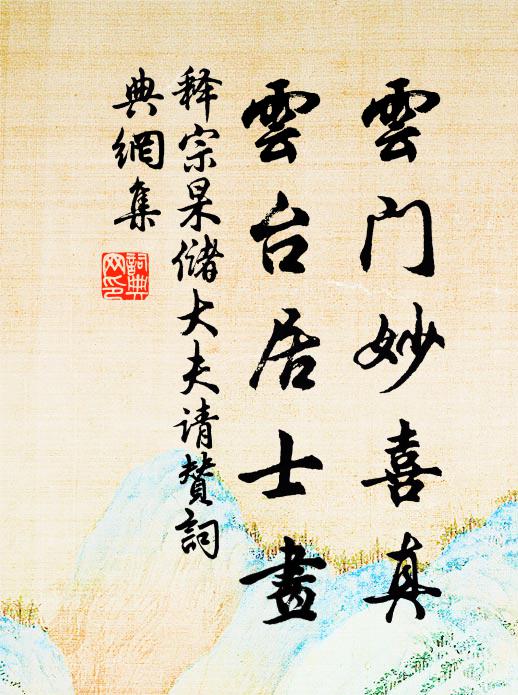 雲门妙喜真
雲台居士畫
释宗杲储大夫请赞詞
典網集
詞典
网印